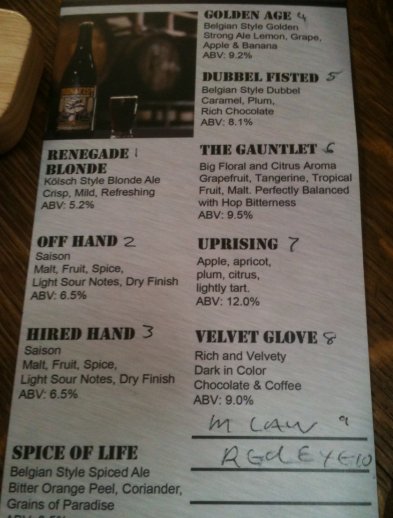 RENEGADE 1
BLONDE
Kölsch Style Blonde Ale
Crisp, Mild, Refreshing
ABV: 5.2%
OFF HAND 2
Saison
Malt, Fruit, Spice,
Light Sour Notes, Dry Finish
ABV: 6.5%
HIRED HAND 3
Saison
Malt, Fruit, Spice,
Light Sour Notes, Dry Finish
ABV: 6.5%
SPICE OF LIFE
Belgian Style Spiced Ale
Bitter Orange Peel, Coriander,
Grains of Paradise
GOLDEN AGE 4
Belgian Style Golden
Strong Ale Lemon, Grape,
Apple & Banana
ABV: 9.2%
DUBBEL FISTED 5
Belgian Style Dubbel
Caramel, Plum,
Rich Chocolate
ABV: 8.1%
THE GAUNTLET 6
Big Floral and Citrus Aroma
Grapefruit, Tangerine, Tropical
Fruit, Malt. Perfectly Balanced
with Hop Bitterness
ABV: 9.5%
UPRISING 7
Apple, apricot,
plum, citrus,
lightly tart.
ABV: 12.0%
VELVET GLOVE 8
Rich and Velvety
Dark in Color
Chocolate & Coffee
ABV: 9.0%
M LAW 9
RED EYE 10